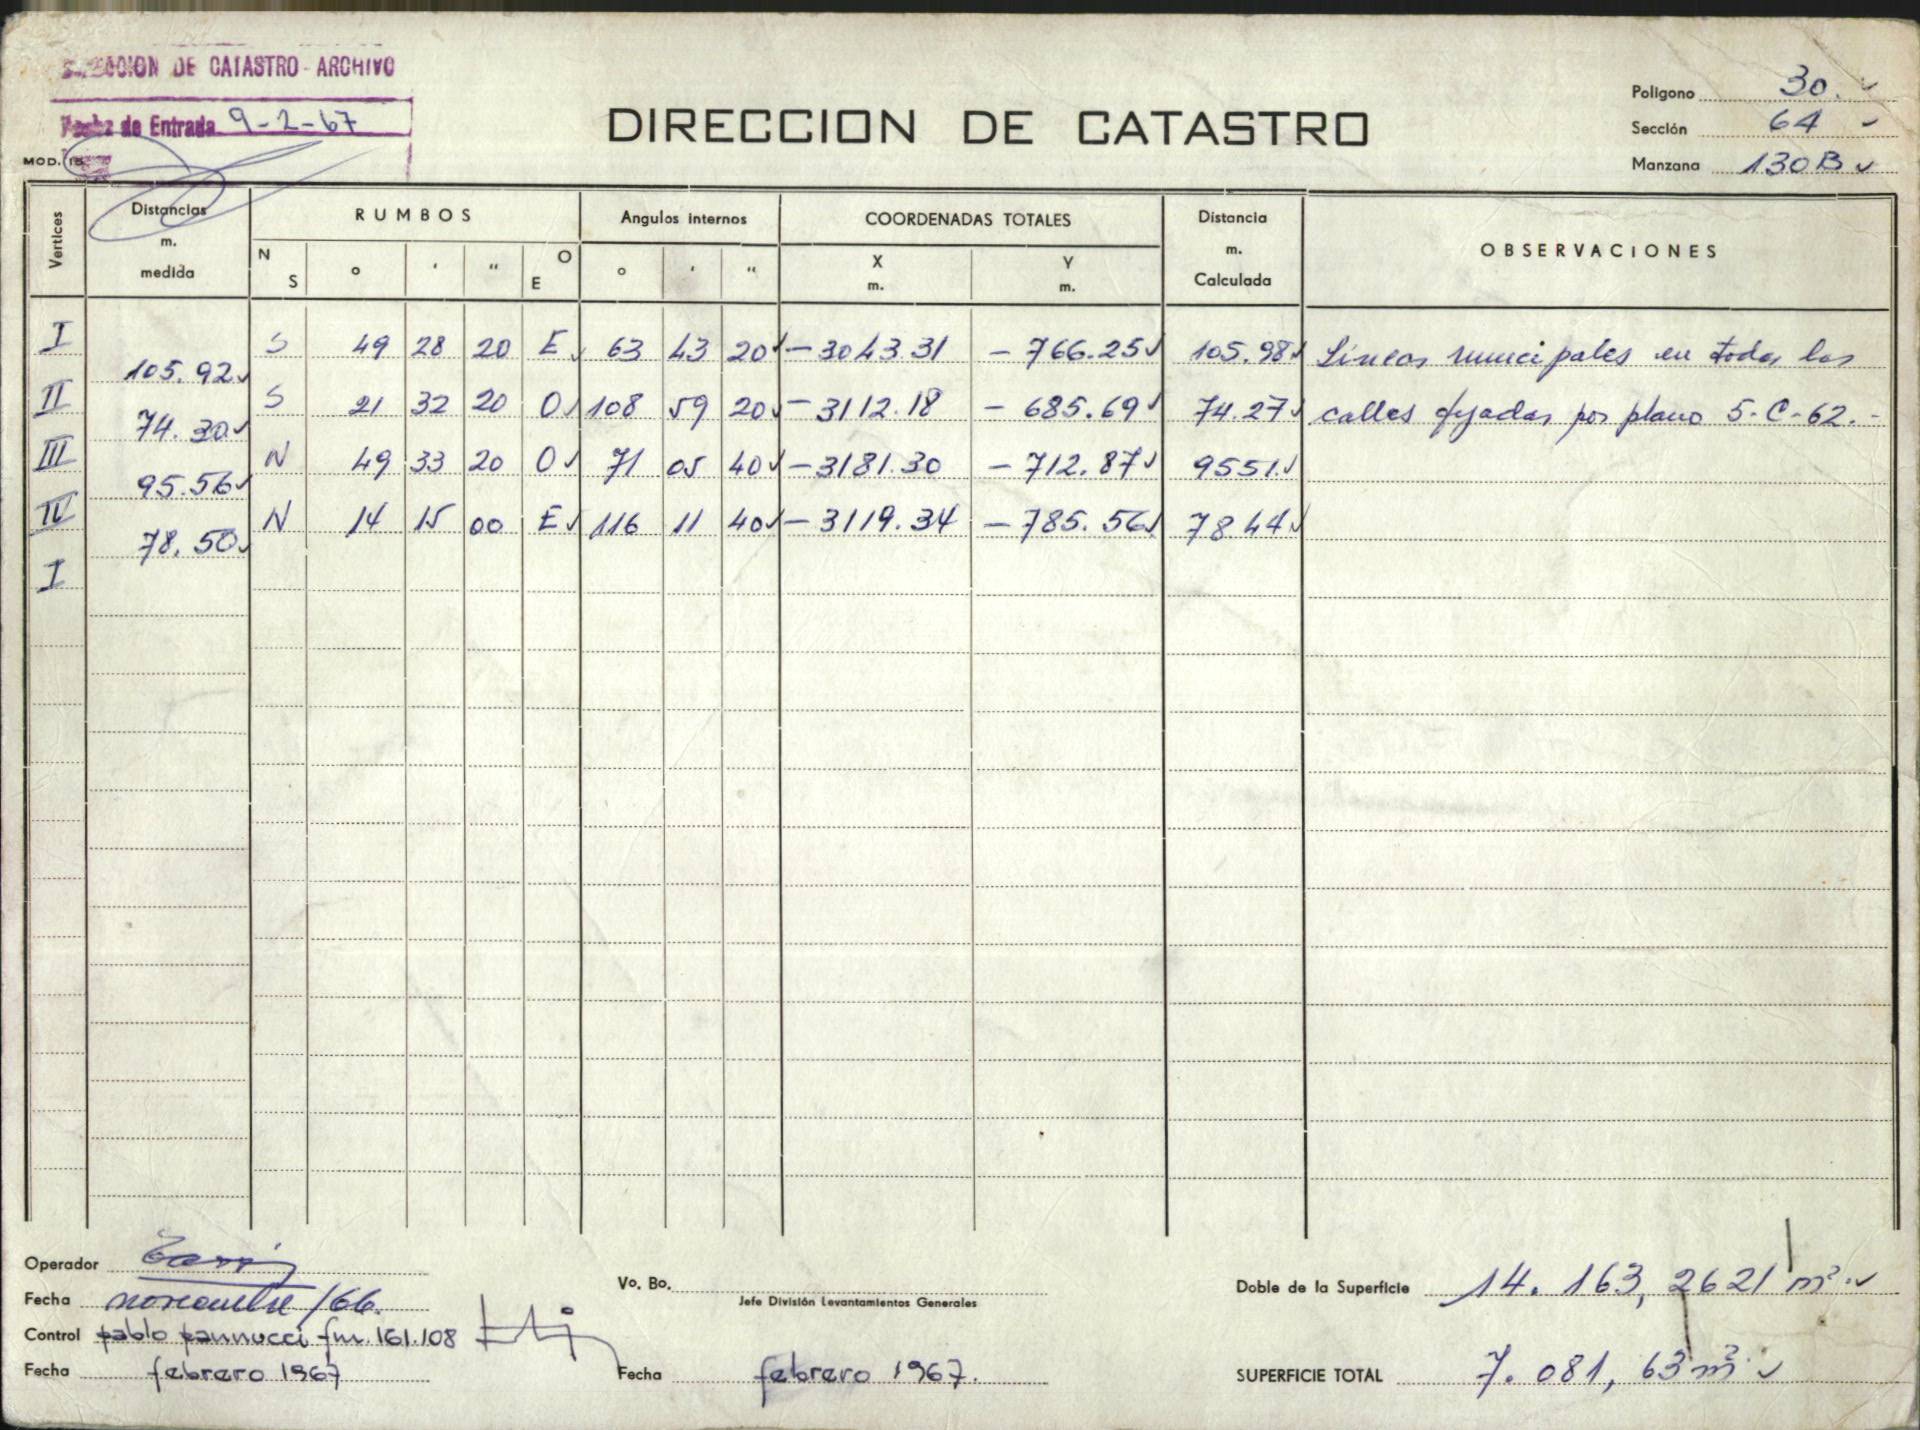 DIRECCION DE CATASTRO - ARCHIVO
Fecha de Entrada 9-2-67
MOD.
DIRECCION DE CATASTRO
Polígono 30.
Sección 64
Manzana 130B
Vertices
Distancias
m.
medida
RUMBOS
N S ° ' " O E
Angulos internos
° ' "
COORDENADAS TOTALES
X
m.
Y
m.
Distancia
m.
Calculada
OBSERVACIONES
I S 49 28 20 E 63 43 20 -3043.31 -766.25 105.98 Líneas municipales en todas las
105.92
II S 21 32 20 O 108 59 20 -3112.18 -685.69 74.27 calles fijadas por plano 5-C-62.-
74.30
III N 49 33 20 O 71 05 40 -3181.30 -712.87 9551
95.56
IV N 14 15 00 E 116 11 40 -3119.34 -785.56 7844
78.50
I
Operador
Fecha noviembre/66.
Control pablo pannucci fm.161.108
Fecha febrero 1967
Vo. Bo.
Jefe División Levantamientos Generales
Fecha febrero 1967.
Doble de la Superficie 14.163,2621 m².
SUPERFICIE TOTAL 7.081,63 m².